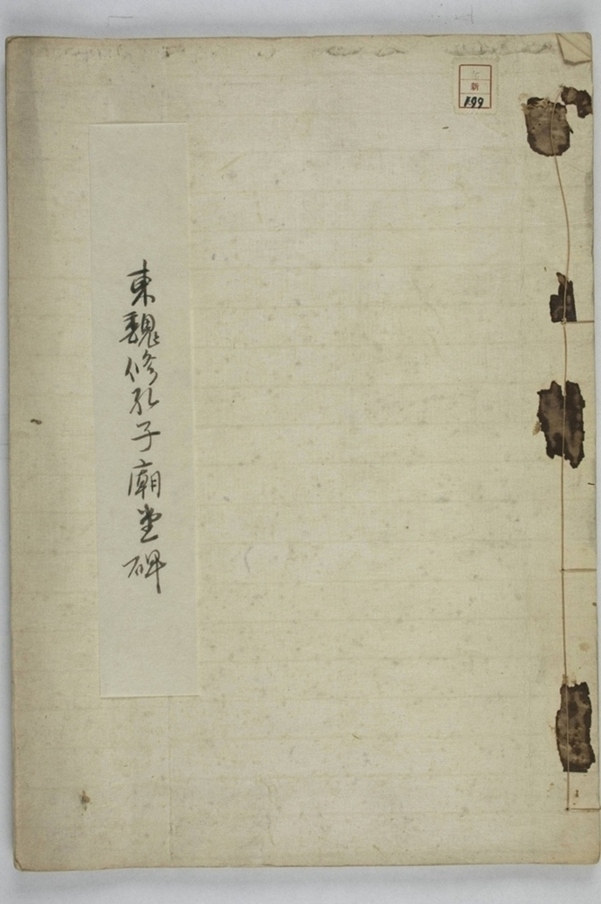 新
199
東魏修孔子廟堂碑